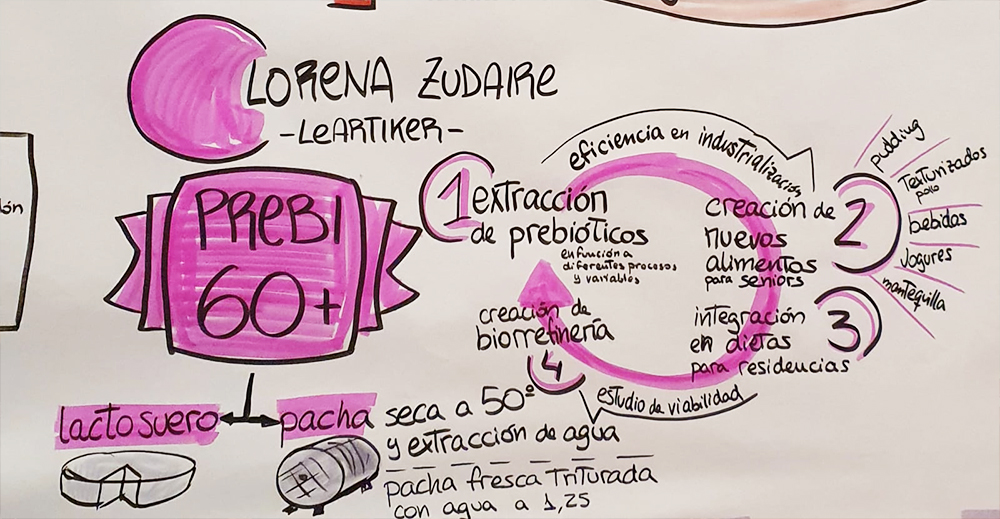 LORENA ZUDAIRE
-LeARTIKER-
PREBI
60+
lactosuero
pacha seca a 50º
y extracción de agua
pacha fresca triturada
con agua a 1,25
eficiencia en industrialización
1 extracción
de prebióticos
en función a
diferentes procesos
y variables
2
creación de
nuevos
alimentos
para seniors
pudding
Texturizados
pollo
bebidas
Yogures
mantequilla
3
integración
en dietas
para residencias
estudio de viabilidad
creación de
biorrefinería
4